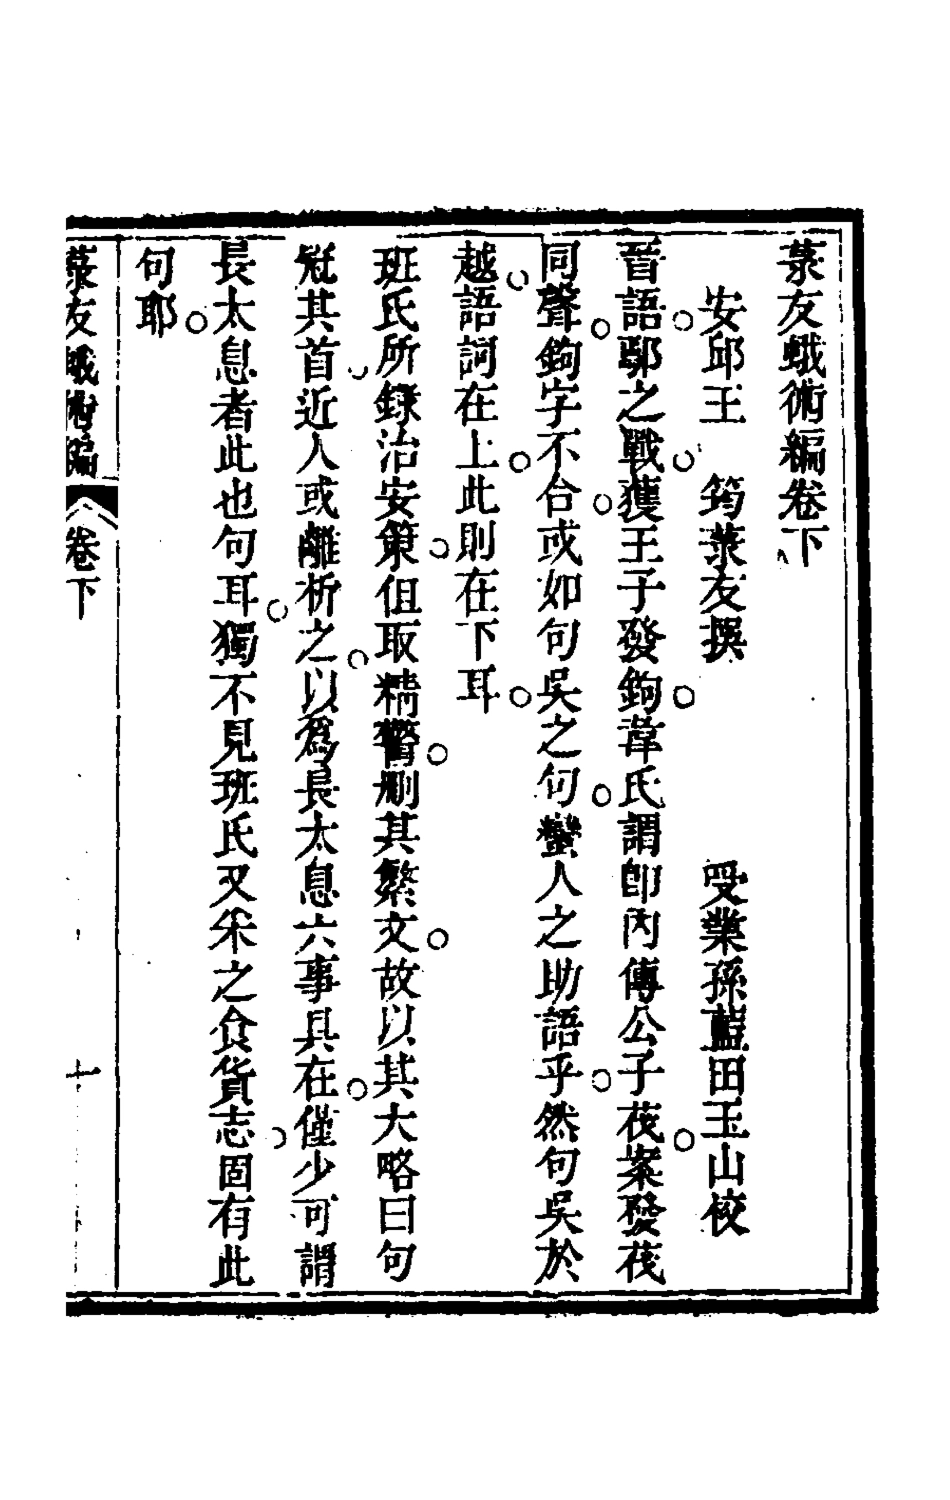 菉友蛾術編卷下
安邱王　筠菉友撰　受業孫藍田玉山校
晉語。鄢之戰。獲王子發鉤。韋氏謂卽內傳公子茷。案發茷
同聲。鉤字不合。或如句吳之句。蠻人之助語乎。然句吳於
越。語詞在上。此則在下耳。
班氏所錄治安策。但取精警。刪其繁文。故以其大略曰句
冠其首。近人或離析之。以爲長太息六事具在。僅少可謂
長太息者此也句耳。獨不見班氏又采之食貨志。固有此
句耶。
菉友蛾術編　卷下　十